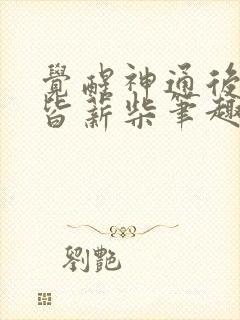 覺醒神通後
皆薪柴筆趣
劉艷